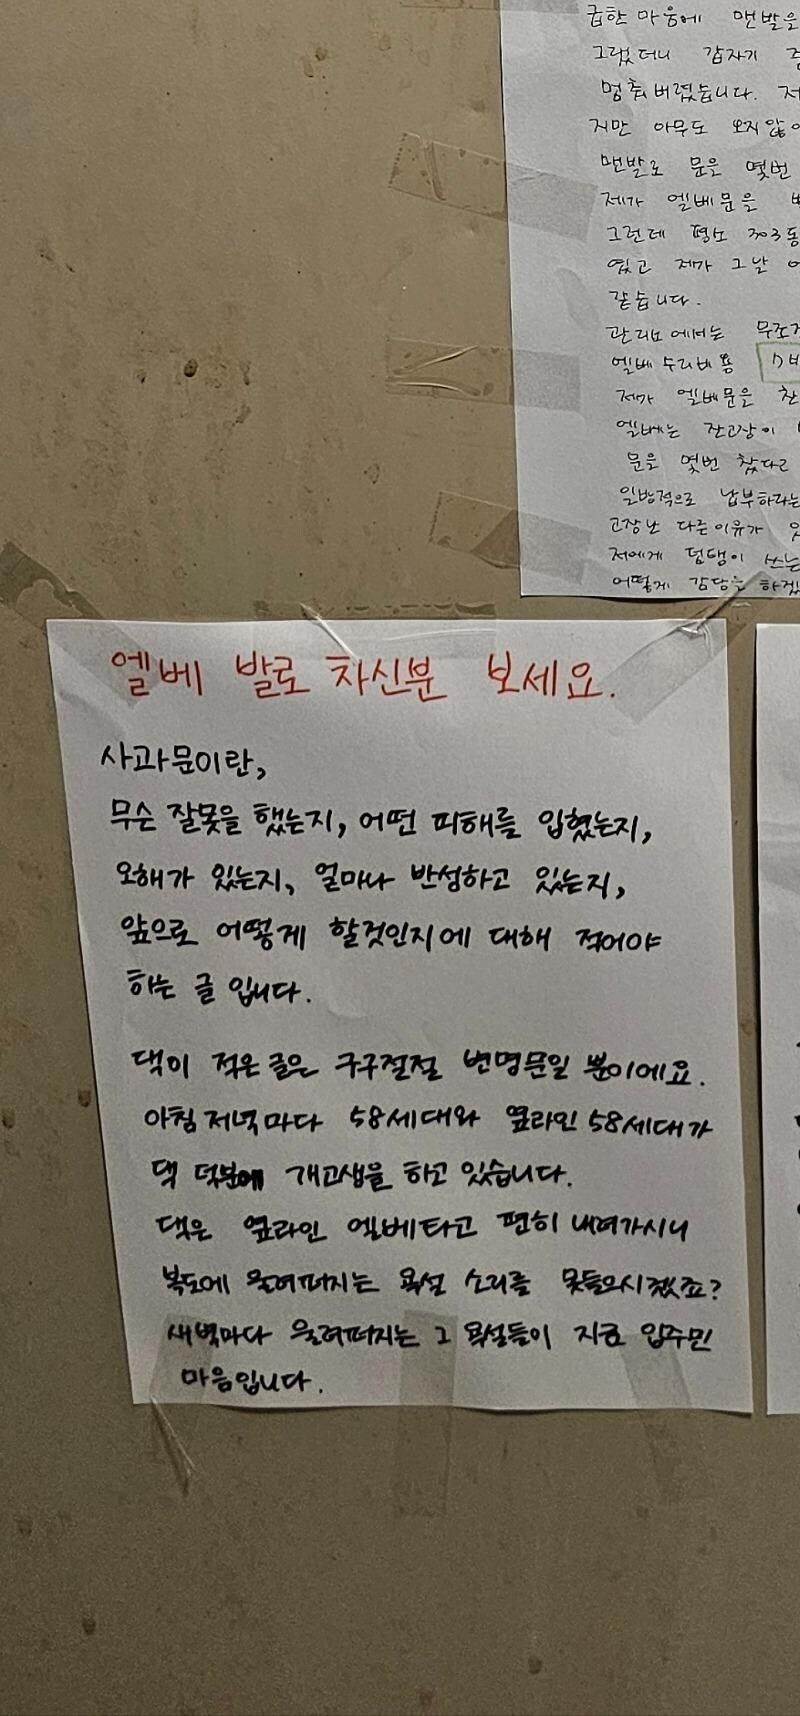 급한 마음에 맨발을
그랬더니 갑자기
멈춰버렸습니다. 저
지만 아무도 오지않아
맨발로 문을 몇번
제가 엘베문을
그런데 평소 303동
였고 제가 그날
같습니다.
관리실에서는 무조건
엘베 수리비용
제가 엘베문을 찬
엘베는 잔고장이
문을 몇번 찼다고
일방적으로 납부하라는
고장난 다른이유가
저에게 덤탱이 쓰는
어떻게 감당을 하겠
엘베 발로 차신분 보세요.
사과문이란,
무슨 잘못을 했는지, 어떤 피해를 입혔는지,
오해가 있는지, 얼마나 반성하고 있는지,
앞으로 어떻게 할것인지에 대해 적어야
하는 글 입니다.
댁이 적은 글은 구구절절 변명문일 뿐이에요.
아침 저녁마다 58세대와 옆라인 58세대가
댁 덕분에 개고생을 하고 있습니다.
댁은 옆라인 엘베타고 편히 내려가시니
복도에 울려퍼지는 욕설 소리를 못들으시겠죠?
새벽마다 울려퍼지는 그 욕설들이 지금 입주민
마음입니다.